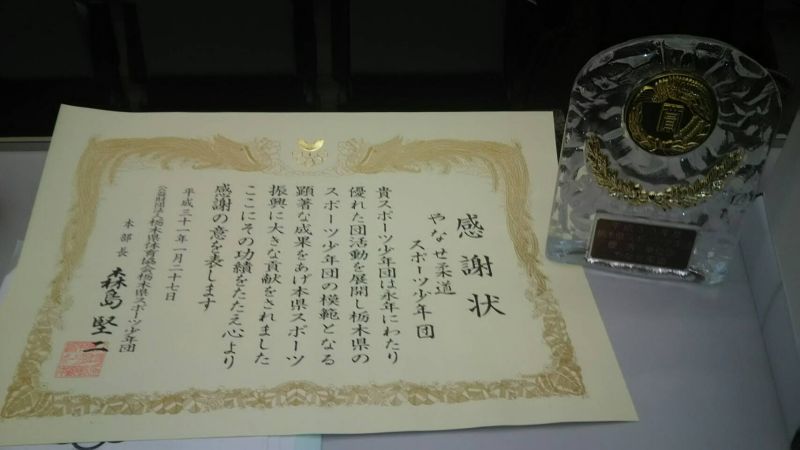 感謝状
やなせ柔道
スポーツ少年団
貴スポーツ少年団は永年にわたり
優れた団活動を展開し栃木県の
スポーツ少年団の模範となる
顕著な成果をあげ本県スポーツ
振興に大きな貢献をされました
ここにその功績をたたえ心より
感謝の意を表します
平成三十一年一月二十七日
公益財団法人栃木県体育協会栃木県スポーツ少年団
本部長 森島堅二
賞